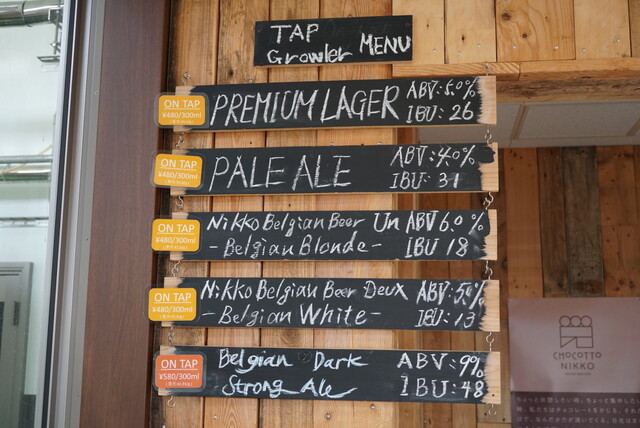 TAP
Growler MENU
ON TAP
¥480/300ml
PREMIUM LAGER
ABV:5.0%
IBU:26
ON TAP
¥480/300ml
PALE ALE
ABV:4.0%
IBU:31
ON TAP
¥480/300ml
Nikko Belgian Beer Un ABV 6.0%
-Belgian Blonde- IBU 18
ON TAP
¥480/300ml
Nikko Belgian Beer Deux ABV:5.0%
-Belgian White- IBU:13
ON TAP
¥580/300ml
Belgian Dark ABV:9%
Strong Ale IBU:48
CHOCOTTO
NIKKO